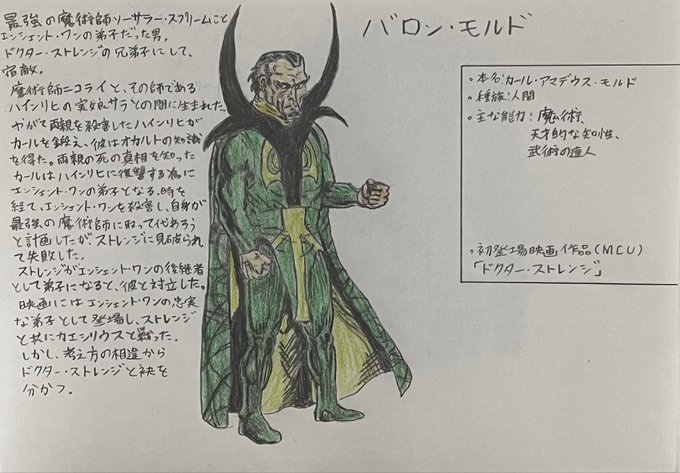 バロン・モルド
最強の魔術師ソーサラー・スプリームこと
エンシェント・ワンの弟子だった男。
ドクター・ストレンジの兄弟子にして、
宿敵。
魔術師ニコライと、その師である
ハインリヒの実娘サラとの間に生まれた。
やがて両親を殺害したハインリヒが
カールを鍛え、彼はオカルトの知識
を得た。両親の死の真相を知った
カールはハインリヒに復讐する為に
エンシェント・ワンの弟子となる。時を
経て、エンシェント・ワンを殺害し、自身が
最強の魔術師に取って代わろう
と計画したが、ストレンジに見破られ
て失敗した。
ストレンジがエンシェント・ワンの後継者
として弟子になると、彼と対立した。
映画にはエンシェント・ワンの忠実
な弟子として登場し、ストレンジ
と共にカエシリウスと戦った。
しかし、考え方の相違から
ドクター・ストレンジと袂を
分かつ。
・本名:カール・アマデウス・モルド
・種族:人間
・主な能力:魔術、
天才的な知性、
武術の達人
・初登場映画作品(MCU)
「ドクター・ストレンジ」